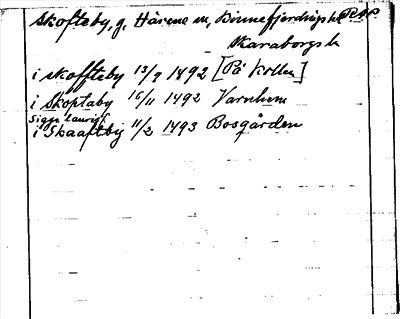 Skofteby, g, Härene sn, Binnefjerdings hd
Skaraborgs l.
i skoffteby 13/9 1492 [På Kollen]
i Skoptaby 16/11 1492 Varnhem
i Skaaftbij 11/2 1493 Bosgården